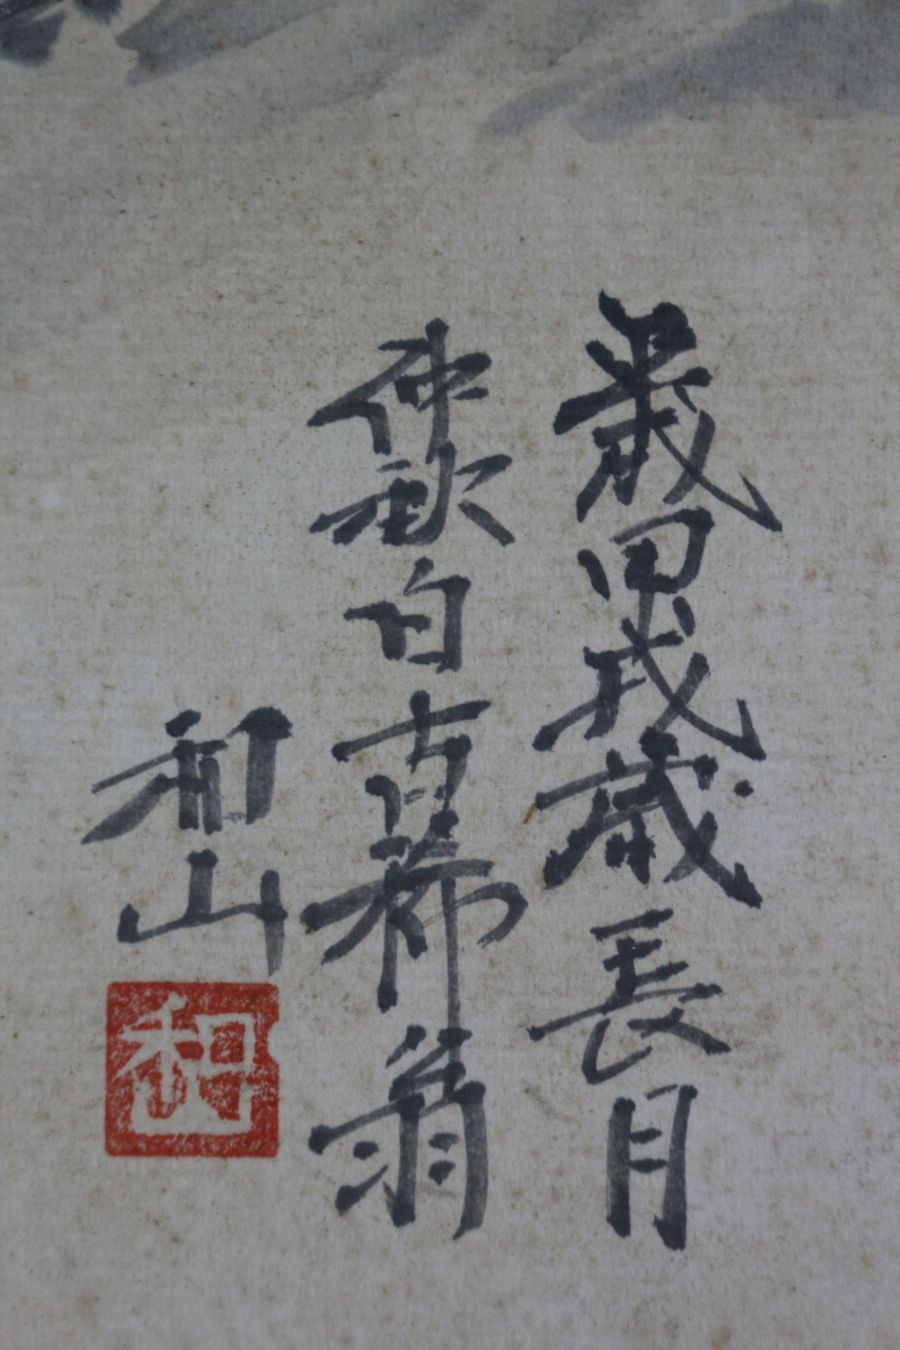 歳甲戌歳長月
仲秋白古稀翁
和山
和山